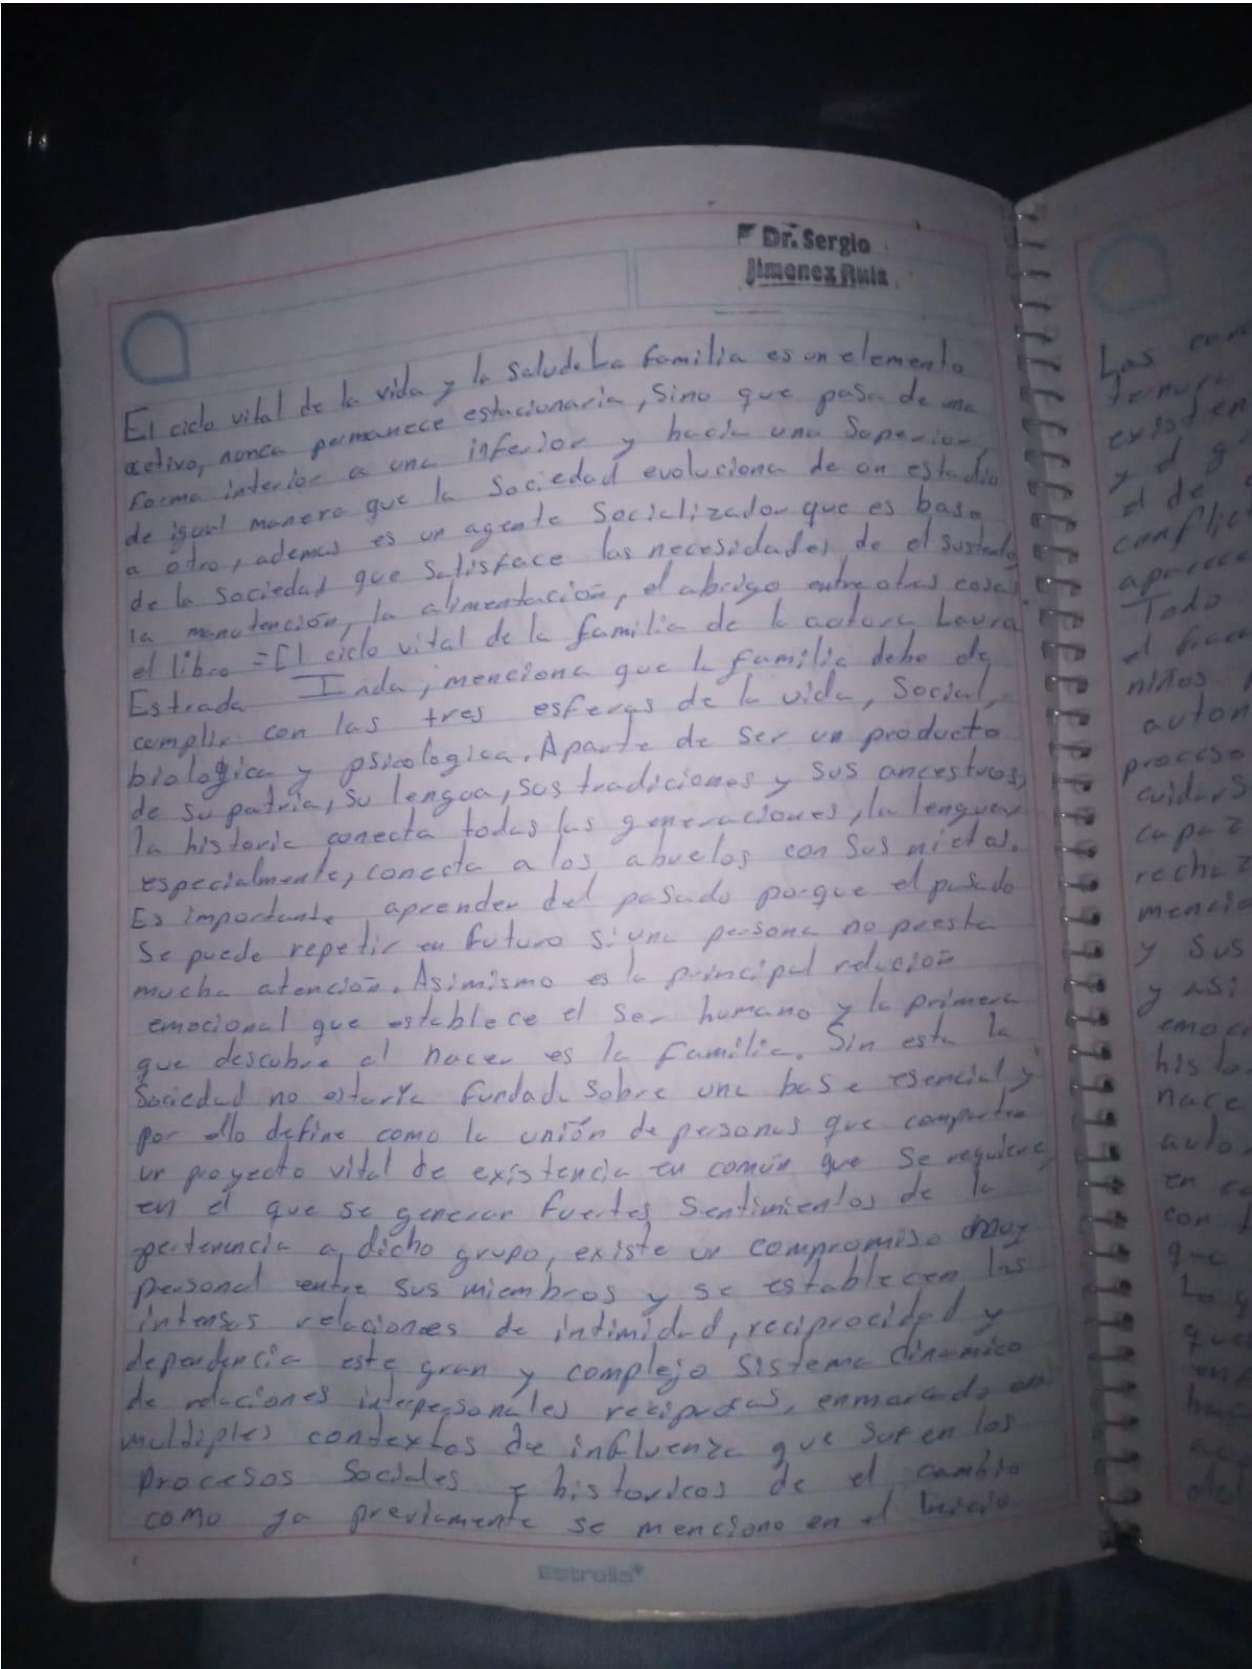 Dr. Sergio
Jimenez Ruiz
El ciclo vital de la vida y la salud. La familia es un elemento
activo, nunca permanece estacionaria, sino que pasa de una
forma interior a una inferior y hacia una superior,
de igual manera que la sociedad evoluciona de un estadio
a otro, ademas es un agente socializador que es base
de la sociedad que satisface las necesidades de el sustento
la manutención, la alimentación, el abrigo entre otras cosas.
el libro = El ciclo vital de la familia de la autora Laura
Estrada Inda, menciona que la familia debe de
cumplir con las tres esferas de la vida, social,
biologica y psicologica. Aparte de ser un producto
de su patria, su lengua, sus tradiciones y sus ancestros,
la historia conecta todas las generaciones, la lengua
especialmente, conecta a los abuelos con sus nietos.
Es importante aprender del pasado porque el pasado
se puede repetir en futuro si una persona no presta
mucha atención. Asimismo es la principal relación
emocional que establece el ser humano y la primera
que descubre al nacer es la familia. Sin esta la
sociedad no estaría fundada sobre una base esencial y
por ello define como la unión de personas que comparten
un proyecto vital de existencia en común que se requiere,
en el que se generan fuertes sentimientos de la
pertenencia a dicho grupo, existe un compromiso muy
personal entre sus miembros y se establecen las
intensas relaciones de intimidad, reciprocidad y
dependencia este gran y complejo sistema dinamico
de relaciones interpersonales reciprocas, enmarcado en
multiples contextos de influenza que sufen los
procesos sociales y historicos de el cambio
como ya previamente se menciono en el inicio
Estrella
Las
ternura
existen
y el
el de
conflic
aparece
Todo
el frac
niños
auton
proceso
cuidars
capaz
rechaz
mencio
y sus
y asi
emoci
histo
nace
autor
en
con
que